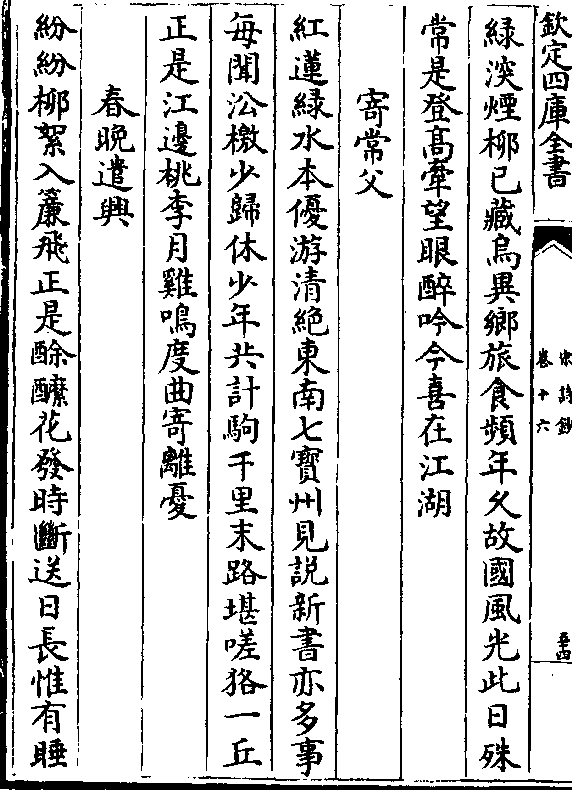 欽定四庫全書
宋詩鈔
卷十六
五四
綠深煙柳已藏烏異鄉旅食頻年久故國風光此日殊
常是登髙牽望眼醉吟今喜在江湖
寄常父
紅蓮綠水本優游清絶東南七寳州見説新書亦多事
每聞公檄少歸休少年共計駒千里末路堪嗟狢一丘
正是江邊桃李月雞鳴度曲寄離憂
春晚遣興
紛紛柳絮入簾飛正是酴醾花發時斷送日長惟有睡